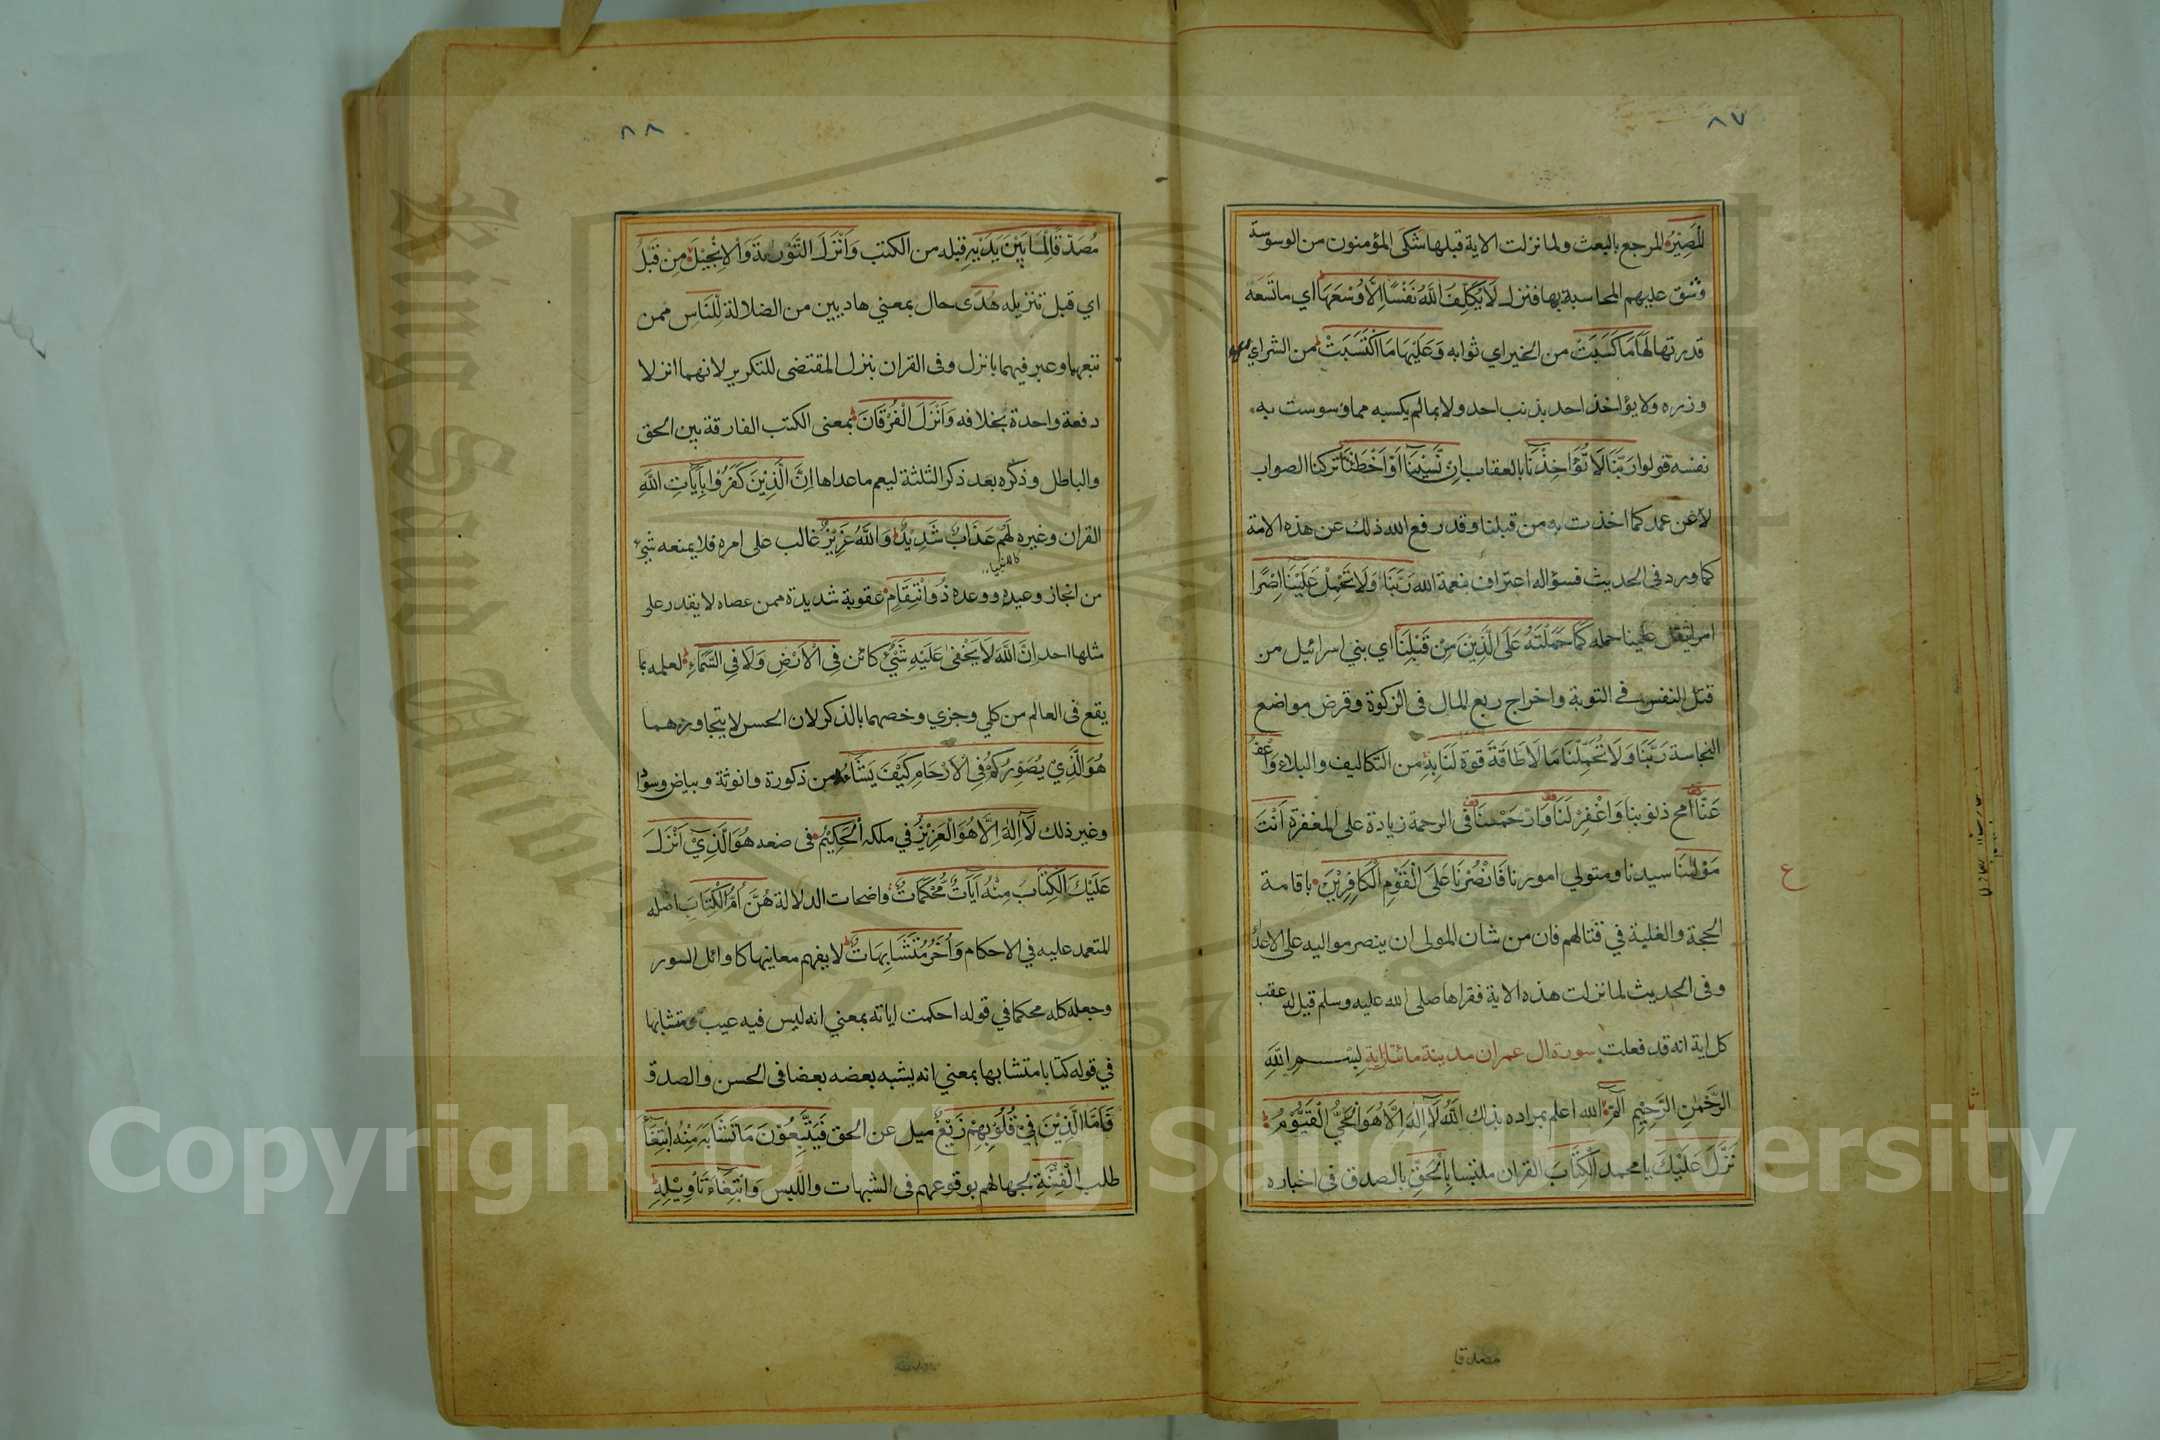 ٨٧
الْمَصِيْرُ المرجع بالبعث ولما نزلت الاية قبلها شكى المؤمنون من الوسوسة
وشق عليهم المحاسبة بها فنزل لَا يُكَلِّفُ اللَّهُ نَفْسًا اِلَّا وُسْعَهَا اي ما تسعه
قدرتها لَهَا مَا كَسَبَتْ من الخير اي ثوابه وَعَلَيْهَا مَا اكْتَسَبَتْ من الشر اي
وزره ولا يؤاخذ احد بذنب احد ولا بما لم يكسبه مما وسوست به
نفسه قولوا رَبَّنَا لَا تُؤَاخِذْنَا بالعقاب اِنْ نَسِيْنَا اَوْ اَخْطَئْنَا تركنا الصواب
لا عن عمد كما اخذت به من قبلنا وقد رفع الله ذلك عن هذه الامة
كما ورد فى الحديث فسؤاله اعتراف بنعمة الله رَبَّنَا وَلَا تَحْمِلْ عَلَيْنَا اِصْرًا
امرا يثقل علينا حمله كَمَا حَمَلْتَهُ عَلَى الَّذِيْنَ مِنْ قَبْلِنَا اي بني اسرائيل من
قتل النفس في التوبة واخراج ربع المال فى الزكوة وقرض مواضع
النجاسة رَبَّنَا وَلَا تُحَمِّلْنَا مَا لَا طَاقَةَ قوة لَنَا بِهِ من التكاليف والبلاء وَاعْفُ
عَنَّا امح ذنوبنا وَاغْفِرْ لَنَا وَارْحَمْنَا فى الرحمة زيادة على المغفرة اَنْتَ
مَوْلٰنَا سيدنا ومتولي امورنا فَانْصُرْنَا عَلَى الْقَوْمِ الْكَافِرِيْنَ باقامة
ع
الحجة والغلبة في قتالهم فان من شان المولى ان ينصر مواليه على الاعداء
وفى الحديث لما نزلت هذه الاية فقراها صلى الله عليه وسلم قيل له عقب
كل اية انه قد فعلت سورة ال عمران مدينة مائتا اية بِسْمِ اللَّهِ
الرَّحْمٰنِ الرَّحِيْمِ الٓمّٓ الله اعلم بمراده بذلك اللَّهُ لَآ اِلٰهَ اِلَّا هُوَ الْحَيُّ الْقَيُّوْمُ
نَزَّلَ عَلَيْكَ يا محمد الْكِتَابَ القران ملتبسا بِالْحَقِّ بالصدق فى اخباره
مصدقا
٨٨
مُصَدِّقًا لِّمَا بَيْنَ يَدَيْهِ قبله من الكتب وَاَنْزَلَ التَّوْرٰىةَ وَالْاِنْجِيْلَ مِنْ قَبْلُ
اي قبل تنزيله هُدًى حال بمعني هاديين من الضلالة لِّلنَّاسِ ممن
تبعهما وعبر فيهما بانزل وفى القران بنزل المقتضى للتكرير لانهما انزلا
دفعة واحدة بخلافه وَاَنْزَلَ الْفُرْقَانَ بمعنى الكتب الفارقة بين الحق
والباطل وذكره بعد ذكر الثلثة ليعم ما عداها اِنَّ الَّذِيْنَ كَفَرُوْا بِاٰيَاتِ اللَّهِ
القران وغيره لَهُمْ عَذَابٌ شَدِيْدٌ وَاللَّهُ عَزِيْزٌ غالب على امره فلا يمنعه شيء
من انجاز وعيده ووعده ذُو انْتِقَامٍ عقوبة شديدة ممن عصاه لا يقدر على
مثلها احد اِنَّ اللَّهَ لَا يَخْفٰى عَلَيْهِ شَيْءٌ كائن فِى الْاَرْضِ وَلَا فِى السَّمَاءِ لعلمه بما
يقع فى العالم من كلي وجزي وخصهما بالذكر لان الحس لا يتجاوزهما
هُوَ الَّذِيْ يُصَوِّرُكُمْ فِى الْاَرْحَامِ كَيْفَ يَشَاءُ من ذكورة وانوثة وبياض وسواد
وغير ذلك لَآ اِلٰهَ اِلَّا هُوَ الْعَزِيْزُ في ملكه الْحَكِيْمُ فى صنعه هُوَ الَّذِيْ اَنْزَلَ
عَلَيْكَ الْكِتَابَ مِنْهُ اٰيَاتٌ مُّحْكَمَاتٌ واضحات الدلالة هُنَّ اُمُّ الْكِتَابِ اصله
المتعمد عليه في الاحكام وَاُخَرُ مُتَشَابِهَاتٌ لا يفهم معانيها كاوائل السور
وجعله كله محكما في قوله احكمت اياته بمعني انه ليس فيه عيب ومتشابها
في قوله كتابا متشابها بمعني انه يشبه بعضه بعضا فى الحسن والصدق
فَاَمَّا الَّذِيْنَ فِيْ قُلُوْبِهِمْ زَيْغٌ ميل عن الحق فَيَتَّبِعُوْنَ مَا تَشَابَهَ مِنْهُ ابْتِغَآءَ
طلب الْفِتْنَةِ لجهالهم بوقوعهم فى الشبهات واللبس وَابْتِغَآءَ تَاْوِيْلِهِ
King Saud University
1957
Copyright © King Saud University